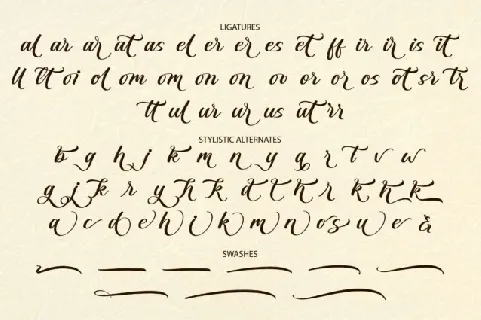 LIGATURES
al ar ar at as el er er es et ff ir ir is it
ll tt oi ol om om on on ov or or os ot sr tr
tt ul ur ur us ut rr
STYLISTIC ALTERNATES
b g h j k m n y q r t v w
g j k r y h k d t h r k h k
a c d e h i k m n o s u e &
SWASHES